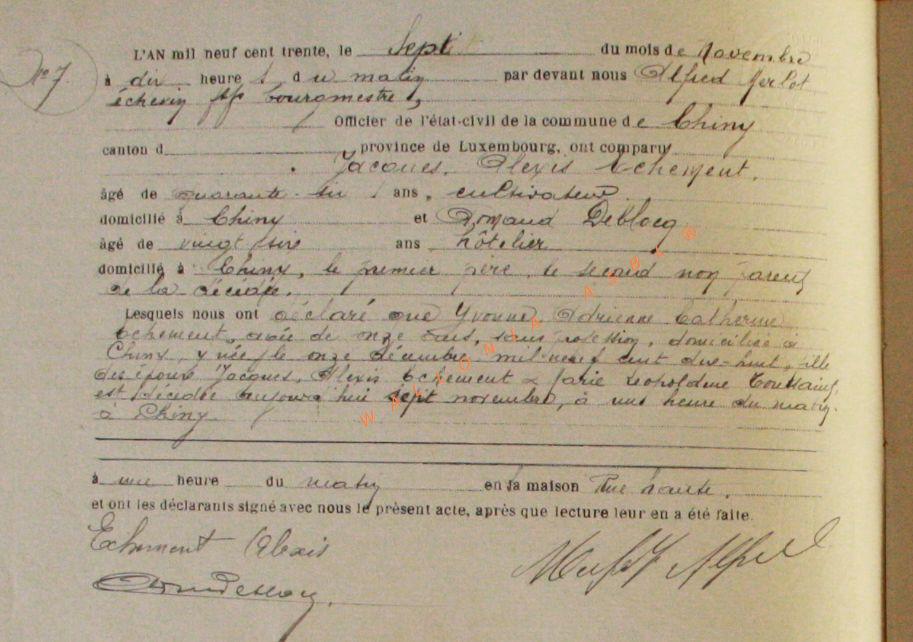 No 7.
L'AN mil neuf cent trente, le Sept du mois de Novembre
à dix heures du matin par devant nous Alfred Merlot
échevin ff bourgmestre,
Officier de l'état-civil de la commune de Chiny
canton d province de Luxembourg, ont comparu
Jacques, Alexis Echement,
âgé de quarante six ans, cultivateur
domicilié à Chiny et Armand Deblocq
âgé de vingt six ans hôtelier
domicilié à Chiny, le premier père, le second non parent
de la décédée.
Lesquels nous ont déclaré que Yvonne, Adrienne Catherine
Echement, âgée de onze ans, sans profession, domiciliée à
Chiny, y née le onze décembre mil neuf cent dix-huit, fille
des époux Jacques, Alexis Echement & Marie Léopoldine Toussaint,
est décédée aujourd'hui sept novembre, à une heure du matin.
à Chiny
à une heure du matin en sa maison Rue haute.
et ont les déclarants signé avec nous le présent acte, après que lecture leur en a été faite.
Echement Alexis
Merlot Alfred
WALLONIA ASBL